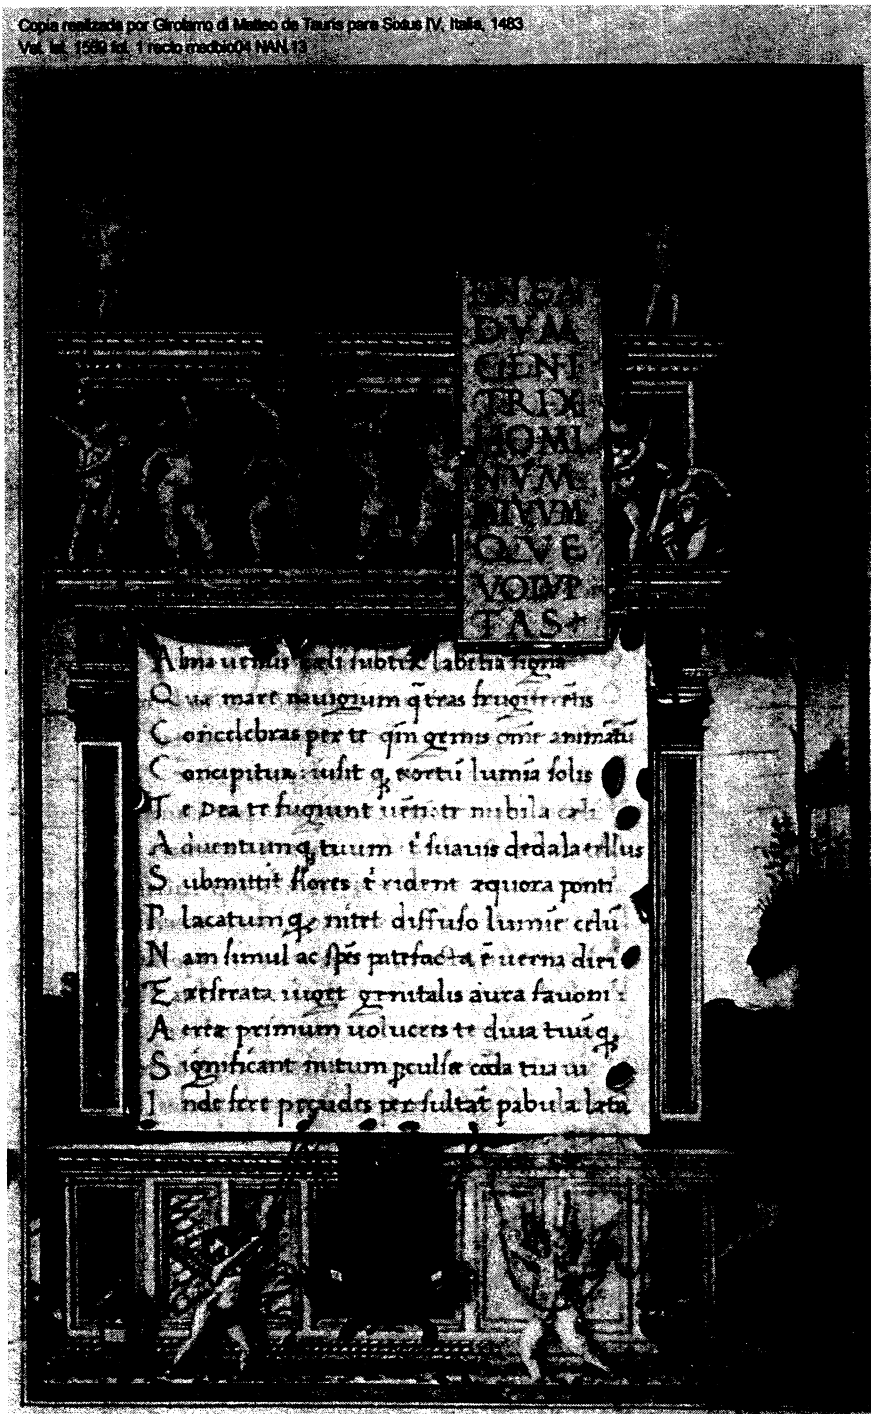 Copia realizada por Girolamo di Matteo de Tauris para Sixtus IV, Italia, 1483
Vat. lat. 1569 fol. 1 recto medbio04 NAN.13
DVM
GENI
TRIX
HOMI
NVM
DIVVM
QVE
VOLVP
TAS
Alma uenus cæli subter labentia signa
Quæ mare nauigium q̄ tras frugifer̄tis
Concelebras per te qm̄ genus om̄e animātū
Concipitur: uisit q; exortū lumīa solis
Te Dea te fugiunt uēti te nubila cæli
Aduentumq; tuum t̄ suauis dedala tellus
Submittit flores t̄ rident æquora ponti
Placatumq; nitet diffuso lumīe celū
Nam simul ac sp̄es patefacta ē uerna diei
Et reserata uiget genitalis aura fauoni
Aeriæ primum uolucres te diua tuūq;
Significant initum p̄culsæ corda tua ui
Inde fere pecudes per sultāt pabula læta